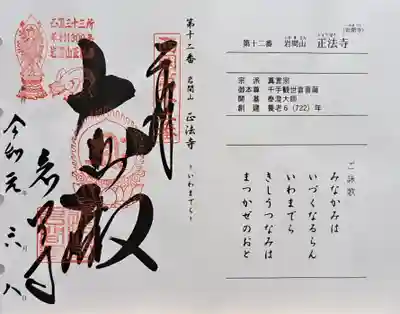 （岩間寺）
第十二番 岩間山 正法寺
宗派 真言宗
御本尊 千手観世音菩薩
開基 泰澄大師
創建 養老6（722）年
ご詠歌
みなかみは
いづくなるらん
いわまでら
きしうつなみは
まつかぜのおと
第十二番 岩間山 正法寺
－いわまでら－
奉拝
大悲殿
岩間寺
令和元年六月八日